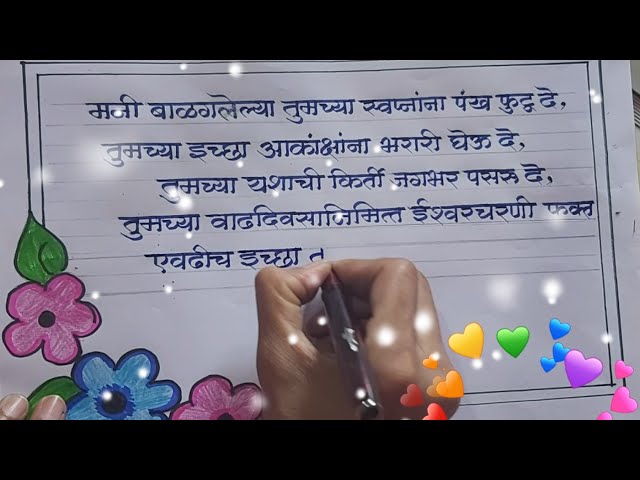 मनी बाळगलेल्या तुमच्या स्वप्नांना पंख फुटू दे,
तुमच्या इच्छा आकांक्षांना भरारी घेऊ दे,
तुमच्या यशाची किर्ती जगभर पसरू दे,
तुमच्या वाढदिवसानिमित्त ईश्वरचरणी फक्त
एवढीच इच्छा त